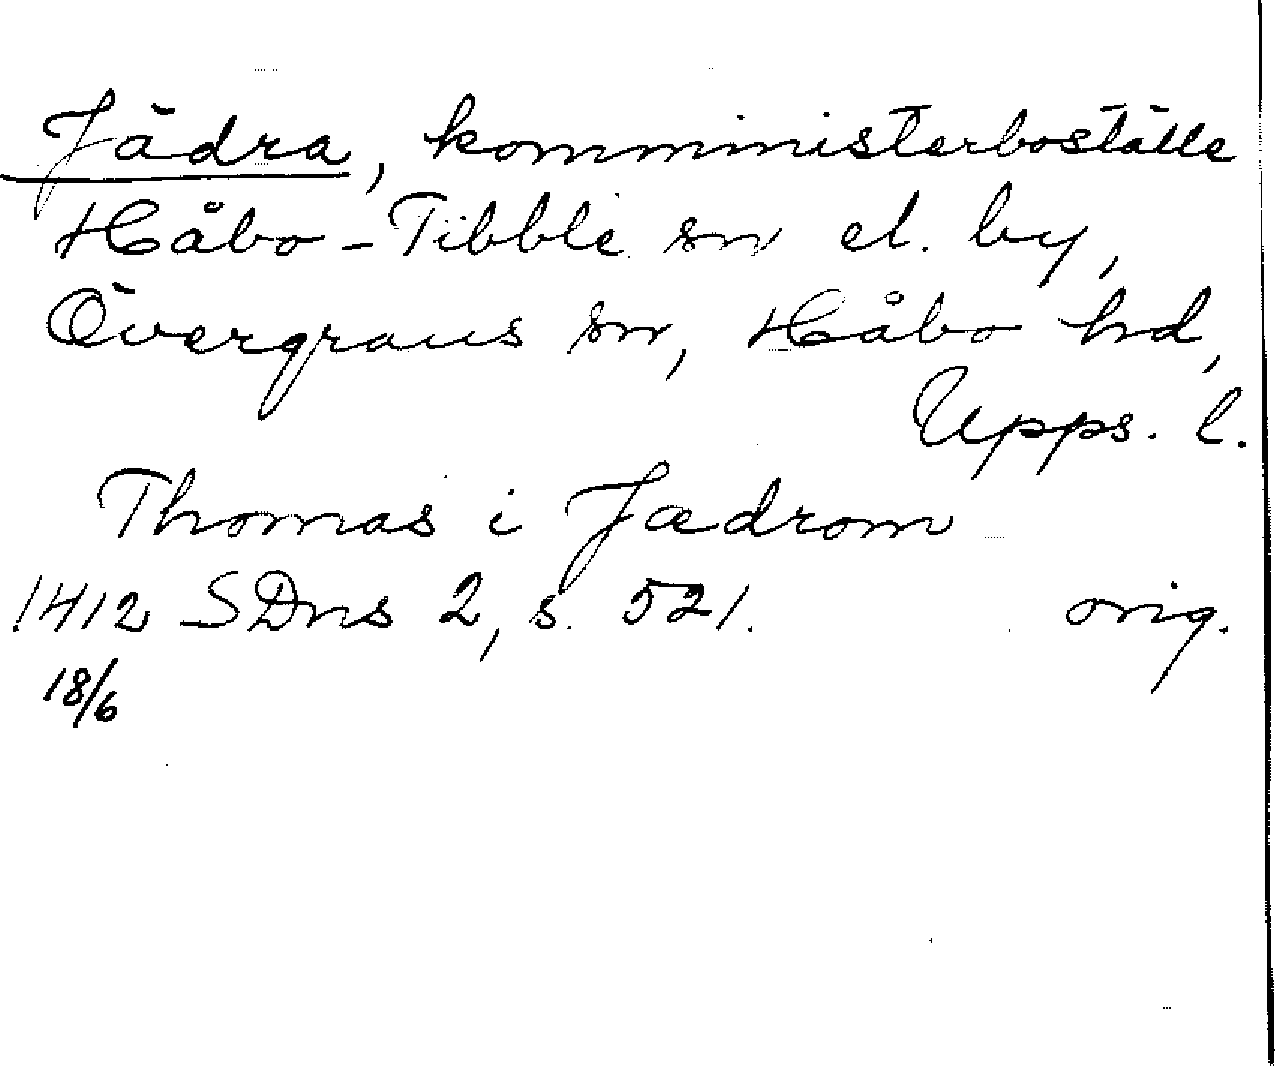 Jädra, komministerboställe
Håbo-Tibble sn el. by,
Övergrans sn, Håbo hd,
Upps. l.
Thomas i Jædrom
1412 SDns 2, s. 521. orig.
18/6